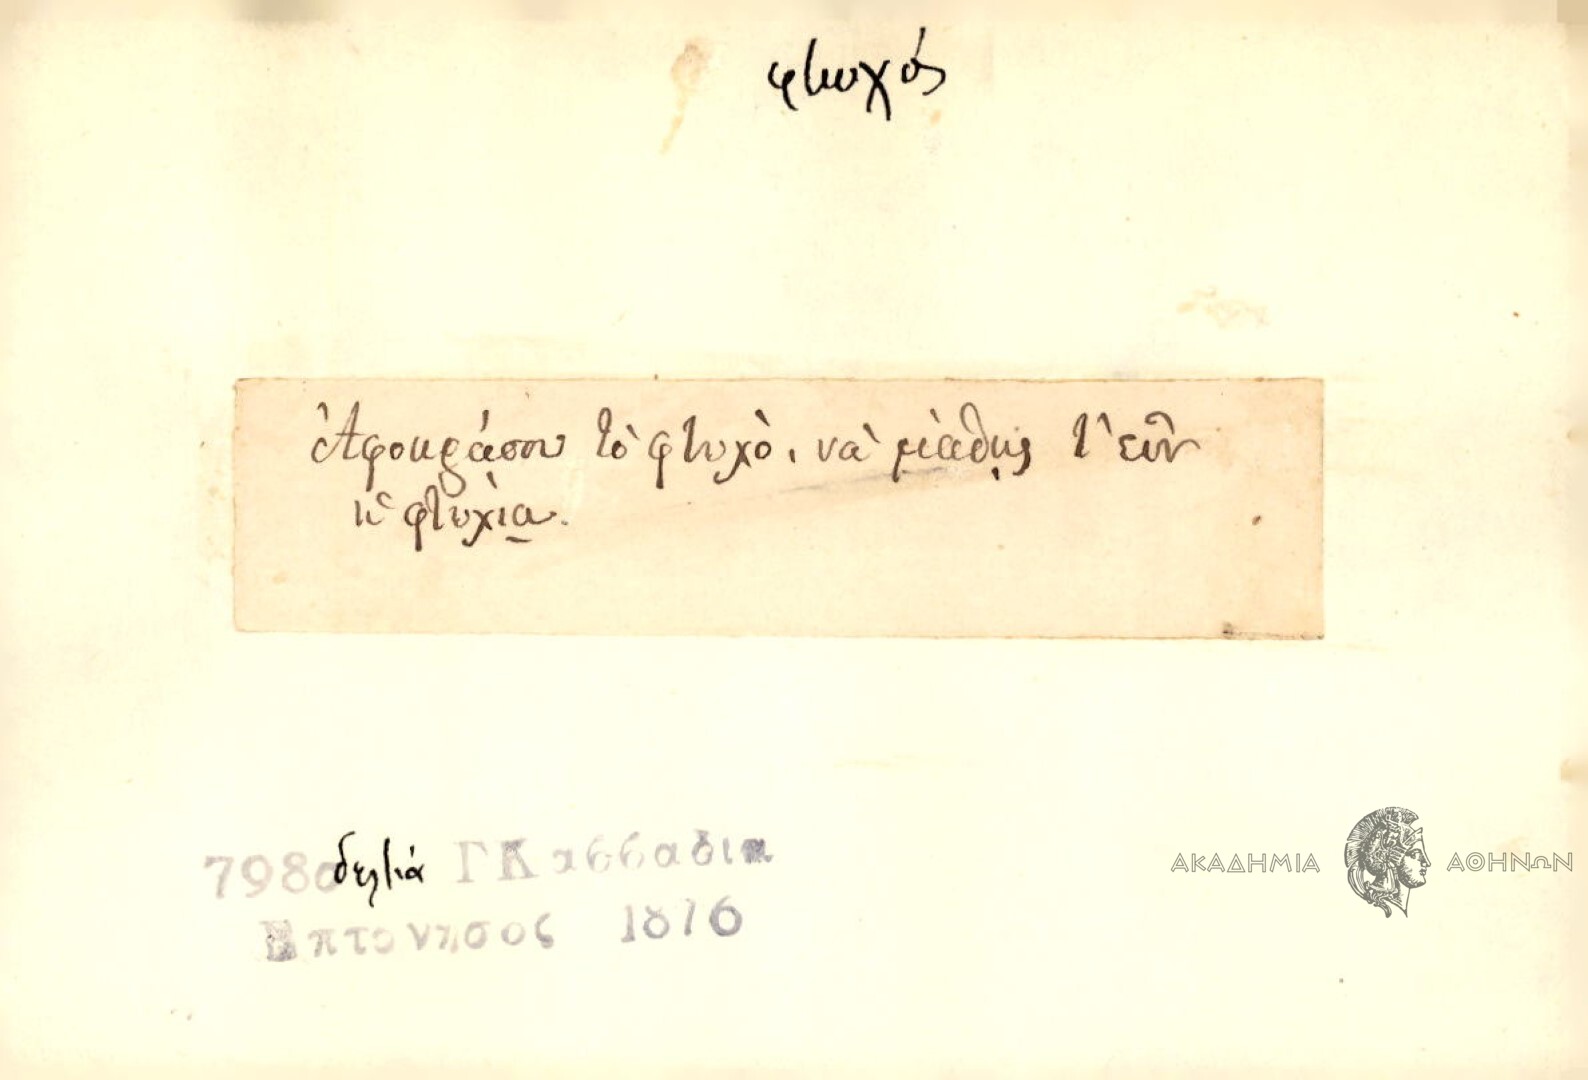 φτωχός
Ἀφοκράσου τὸ φτωχὸ, νὰ μάθῃς τ' εἶν
ἡ φτώχια.
798 δελτιά Γ Κασσαδια
Επτανησος 1876
ΑΚΑΔΗΜΙΑ ΑΘΗΝΩΝ